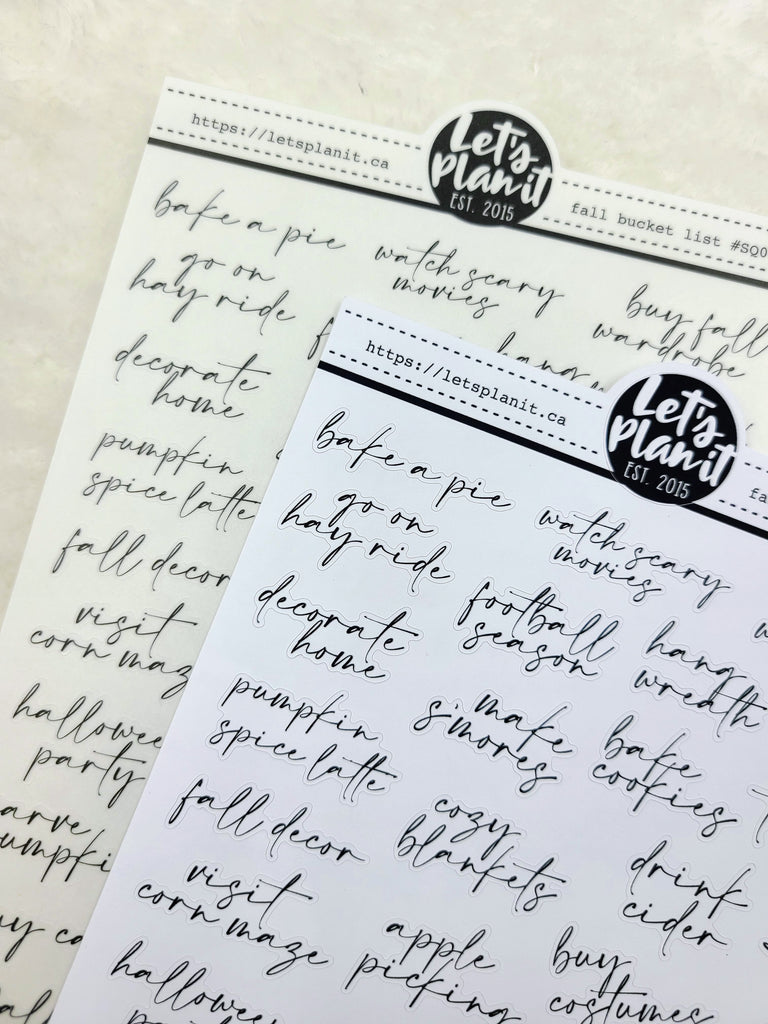 https://letsplanit.ca
Let's
plan it
EST. 2015
fall bucket list #SQ0
bake a pie
watch scary
movies
buy fall
wardrobe
go on
hay ride
hang
decorate
home
pumpkin
spice latte
fall decor
visit
corn maze
hallowee
party
arve
umpki
https://letsplanit.ca
Let's
plan it
EST. 2015
fa
bake a pie
watch scary
movies
go on
hay ride
football
season
hang
wreath
decorate
home
make
s'mores
bake
cookies
pumpkin
spice latte
cozy
blankets
drink
cider
fall decor
visit
corn maze
apple
picking
buy
costumes
hallowee